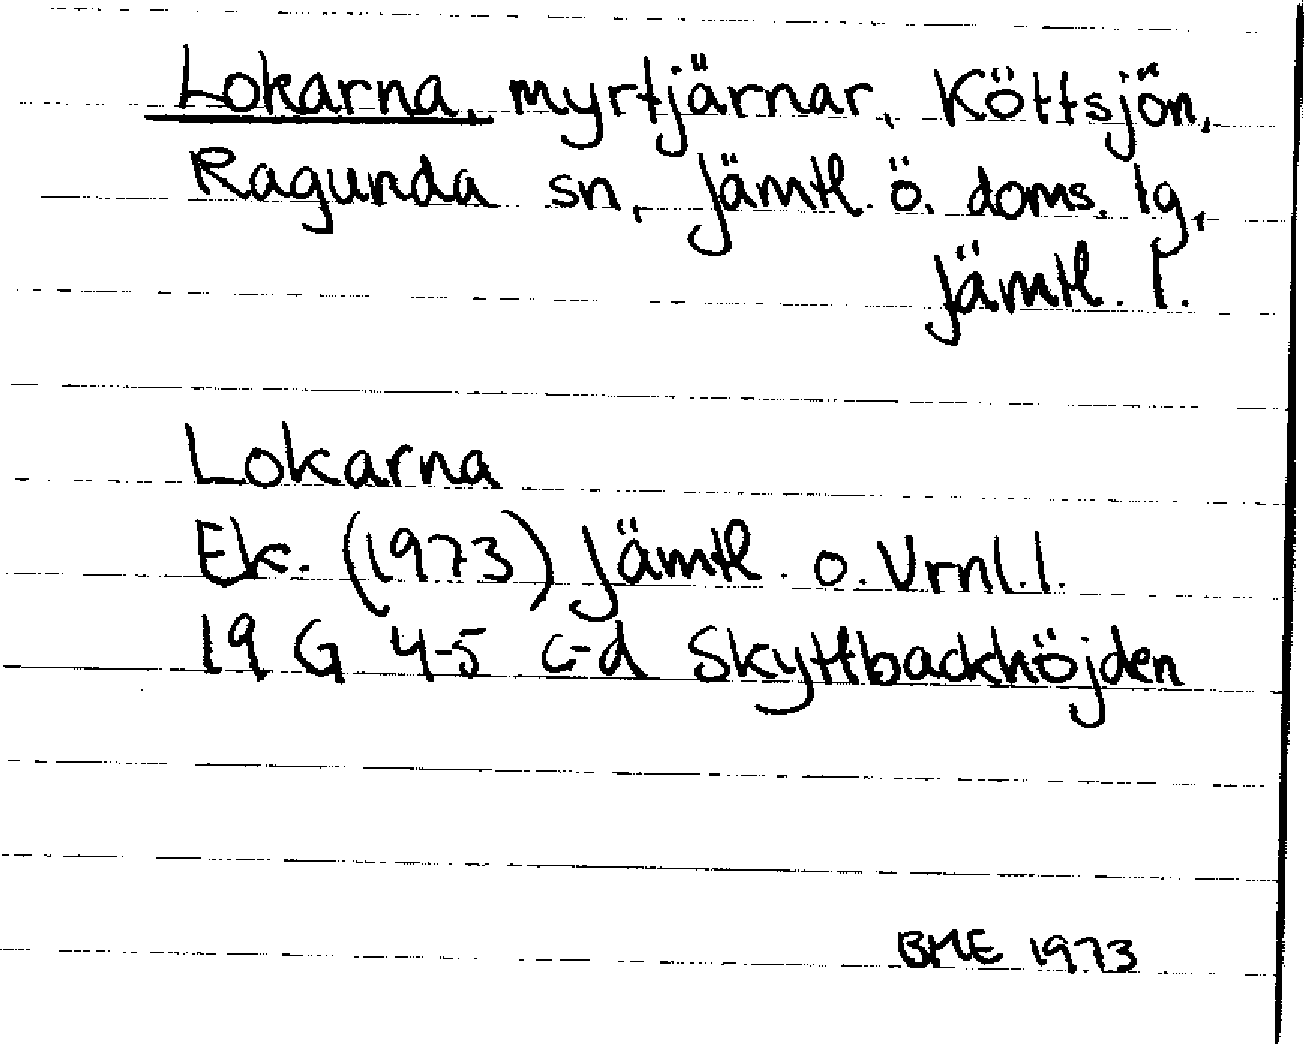 Lokarna, myrtjärnar, Köttsjön,
Ragunda sn, Jämtl. ö. doms. lg,
Jämtl. l.
Lokarna
Ek. (1973) Jämtl. o. Vrnl. l.
19 G 4-5 c-d Skyttbackhöjden
BME 1973